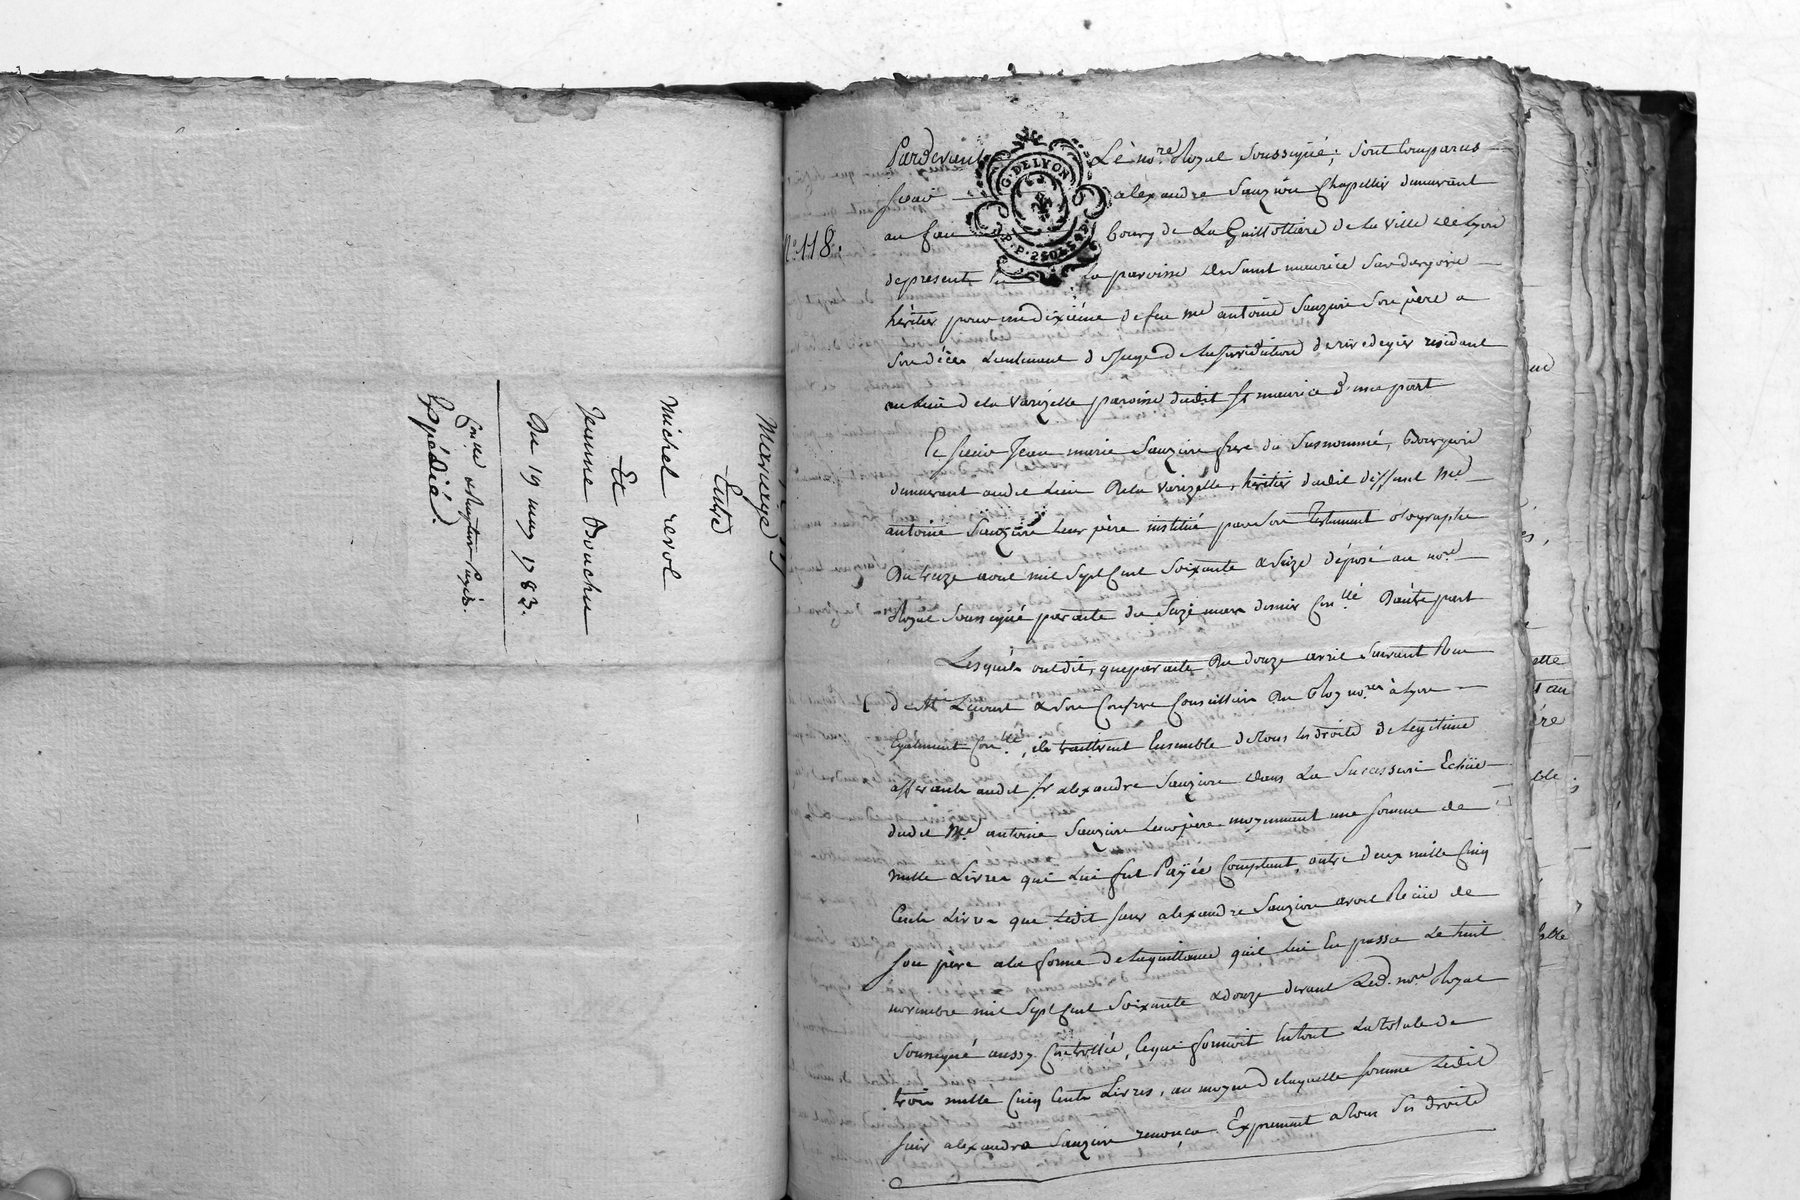 Mariage
Entre
Michel revol
Et
Jeanne Bouchu
Du 19 may 1783.
Expédié.
N.° 118.
G. DE LYON
Pardevant Le no.re Royal Soussigné; Sont Comparus
sieur alexandre Sauzion Chapellier demeurant
au faubourg de La Guillottiere de la ville de Lyon
depresent La paroisse de Saint maurice Sur dargoire
héritier pour un dixième de feu me antoine Sauzion Son père a
Son décès Lieutenant de Juge de La Juridiction de rivedegier residant
au Lieu de la Varizelle paroisse dudit St maurice d'une part
Et sieur Jean marie Sauzion frere du Susnommé, Bourgeois
demeurant audit Lieu De la Varizelle, héritier dudit deffunt Me
antoine Sauzion Leur père institué par Son Testament olographe
Du treize aout mil Sept Cent Soixante & Seize déposé au no.re
Royal Soussigné par acte du Seize mars dernier Con.llé D'autre part
Lesquels ont dit, que par acte Du douze avril Suivant Reçu
de Me & Son Confrere Conseillers Du Roy no.res à Lyon
Egalement Con.llé, ils traitterent Ensemble de tous les droits de Légitime
afférants audit Sr alexandre Sauzion dans La Succession Echüe
dudit Me antoine Sauzion Leur père moyennant une somme de
mille Livres qui Lui fut Païée Comptant, outre deux mille Cinq
Cents Livres que Ledit sieur alexandre Sauzion avoit Reçüe de
son père a la forme de La quittance qu'il Lui En passa Le huit
novembre mil Sept Cent Soixante & douze devant Led. no.re Royal
Soussigné aussy Controllée, Ce qui formoit En tout La totale de
trois mille Cinq Cents Livres, au moyen de laquelle somme Ledit
sieur alexandre Sauzion renonça Expressement a tous Ses droits